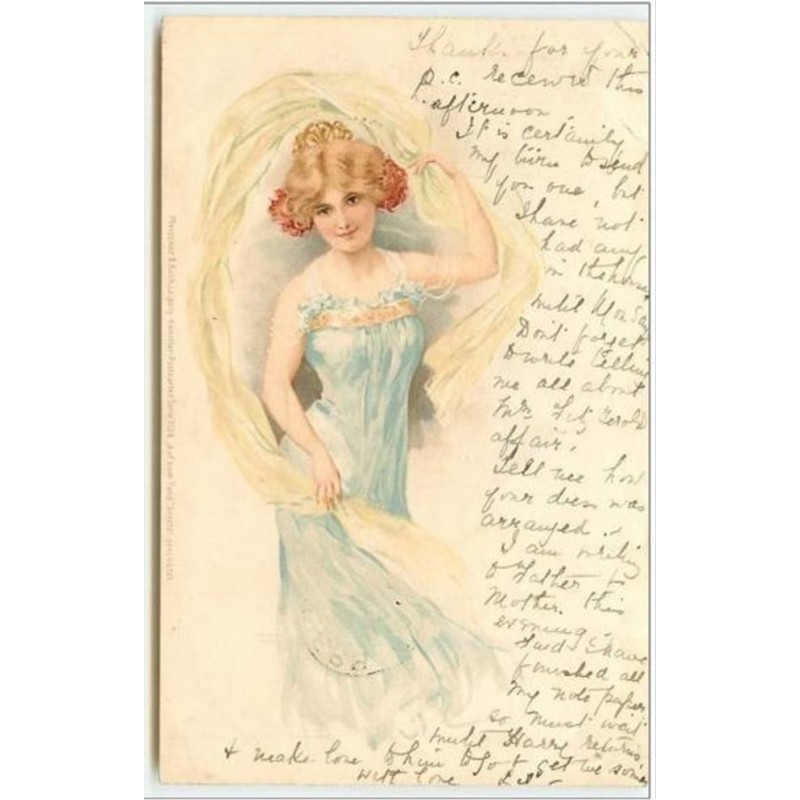 Thanks for your
p.c. received this
afternoon
It is certainly
my turn to send
you one, but
I have not
had any
in the house
until Monday
Dont forget
to write telling
me all about
Mrs Fitz Gerold
affair.
Tell me how
your dress was
arranged.
I am writing
to Father &
Mother. this
evening.
Find I have
finished all
my note paper
so must wait
until Harry returns.
& make love to him to go & get me some
with love